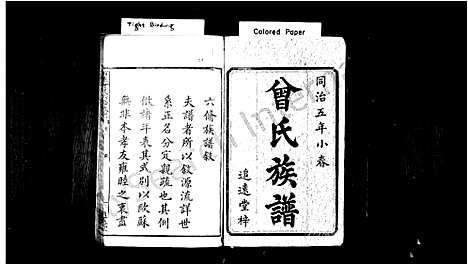 Tight Binding
Colored Paper
同治五年小春
曾氏族譜
追遠堂梓
六脩族譜敘
夫譜者所以敘源流詳世
系正名分定親疏也其例
倣諸年表其式別以歐蘇
無非本孝友雍睦之衷盡